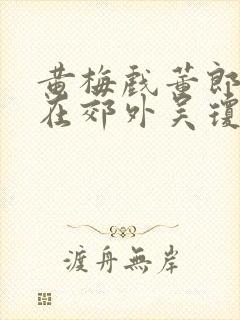 黄梅戏董郎
在郊外吴琼
渡舟無岸